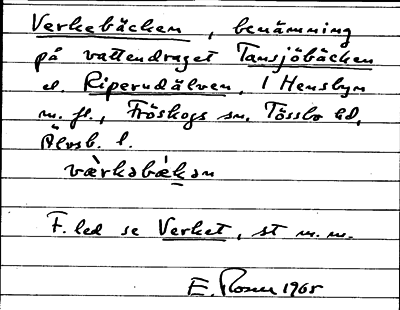 Verkebäcken, benämning
på vattendraget Tansjöbäcken
el. Riperudälven, i Hensbyn
m. fl., Fröskogs sn, Tössbo hd,
Älvsb. l.
væ̀rkəbækən
F. led se Verket, st m. m.
E. Rosen 1965